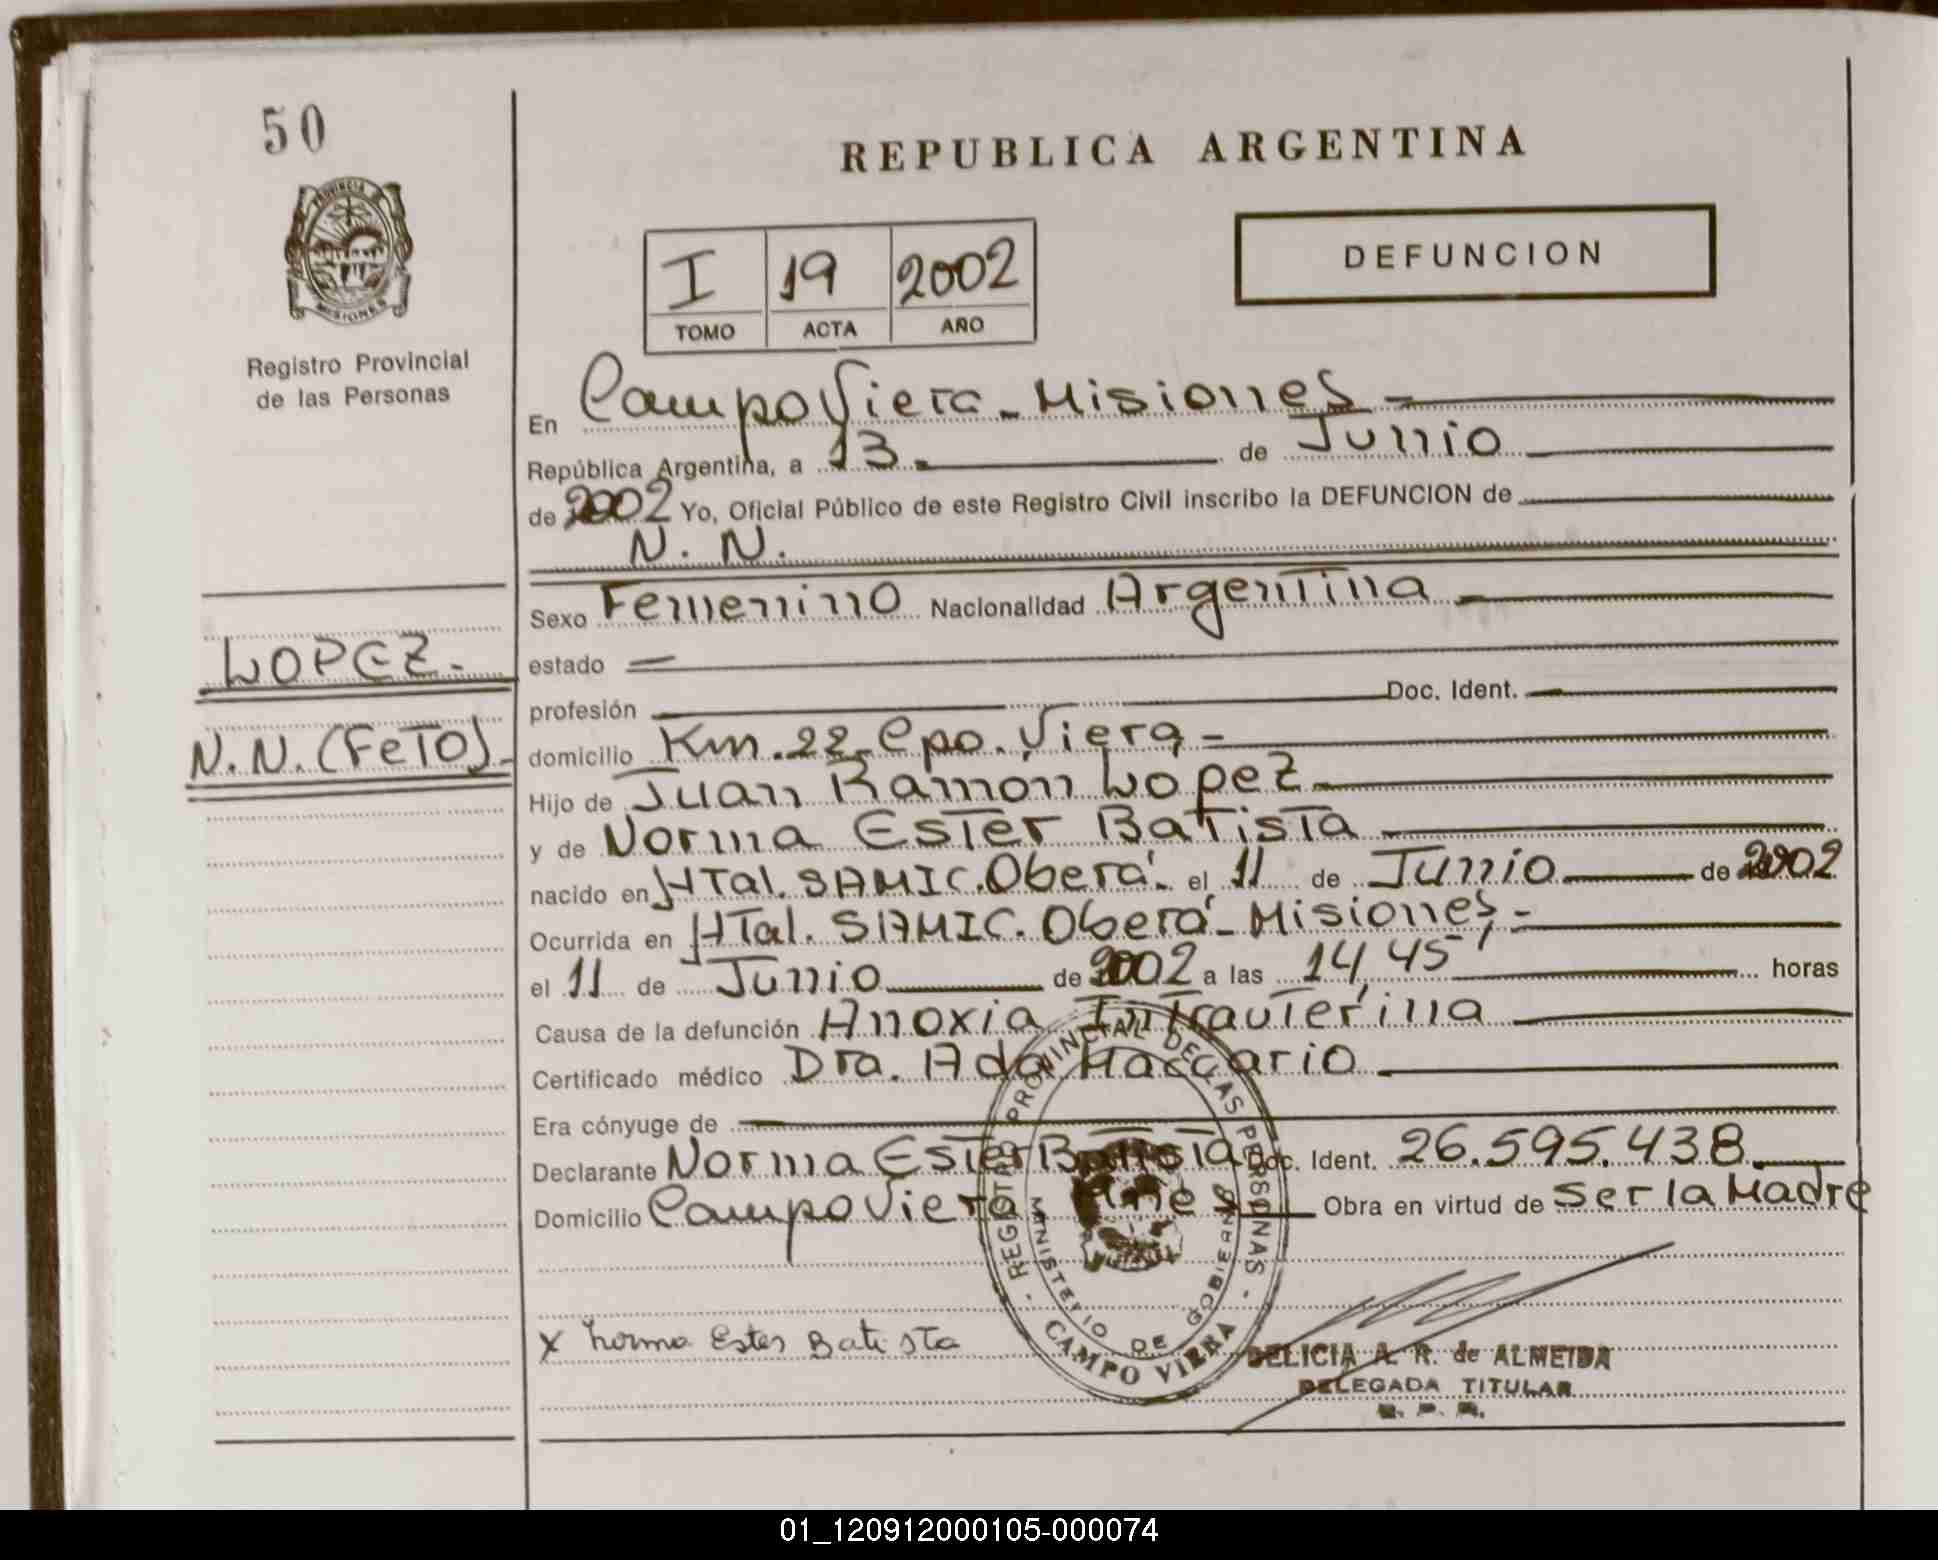 50
PROVINCIA DE
MISIONES
Registro Provincial
de las Personas
REPUBLICA ARGENTINA
DEFUNCION
I 19 2002
TOMO ACTA AÑO
En Campo Viera - Misiones -
República Argentina, a 13. de Junio
de 2002 Yo, Oficial Público de este Registro Civil inscribo la DEFUNCION de
N. N.
LOPEZ.
N.N. (FETO)
Sexo Femenino Nacionalidad Argentina
estado
profesión Doc. Ident.
domicilio Km. 22 Cpo. Viera -
Hijo de Juan Ramón Lopez
y de Norma Ester Batista
nacido en HTal. SAMIC. Oberá - el 11 de Junio de 2002
Ocurrida en HTal. SAMIC. Oberá - Misiones, -
el 11 de Junio de 2002 a las 14,45 horas
Causa de la defunción Anoxia Intrauterina
Certificado médico Dra. Ada Maccario
Era cónyuge de
Declarante Norma Ester Batista Doc. Ident. 26.595.438
Domicilio Campo Viera Mnes Obra en virtud de Ser la Madre
REGISTRO PROVINCIAL DE LAS PERSONAS
MINISTERIO DE GOBIERNO
CAMPO VIERA
x norma Ester Batista
DELICIA A. R. de ALMEIDA
DELEGADA TITULAR
R. P. P.
01_120912000105-000074